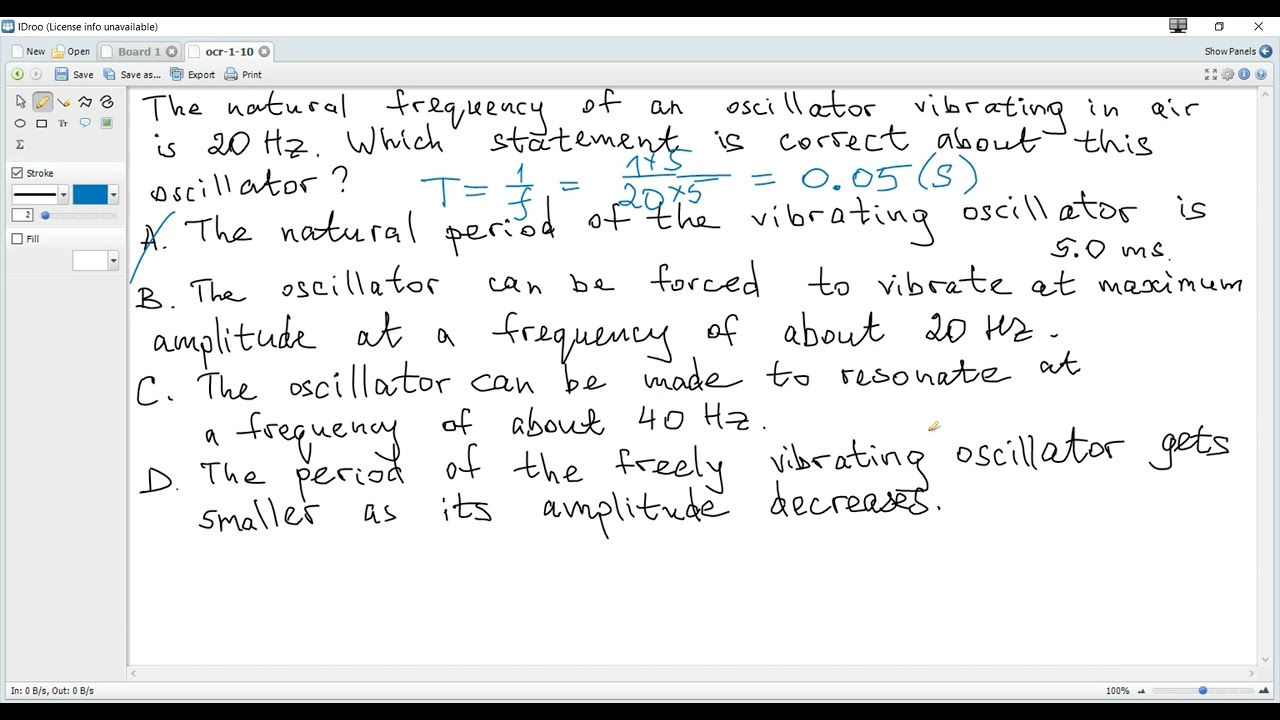 IDroo (License info unavailable)
New Open Board 1 ocr-1-10 Show Panels
Save Save as... Export Print
The natural frequency of an oscillator vibrating in air
is 20 Hz. Which statement is correct about this
oscillator? T = 1/f = 1×5/20×5 = 0.05 (S)
A. The natural period of the vibrating oscillator is
5.0 ms.
B. The oscillator can be forced to vibrate at maximum
amplitude at a frequency of about 20 Hz.
C. The oscillator can be made to resonate at
a frequency of about 40 Hz.
D. The period of the freely vibrating oscillator gets
smaller as its amplitude decreases.
Tr
Σ
Stroke
2
Fill
In: 0 B/s, Out: 0 B/s 100%